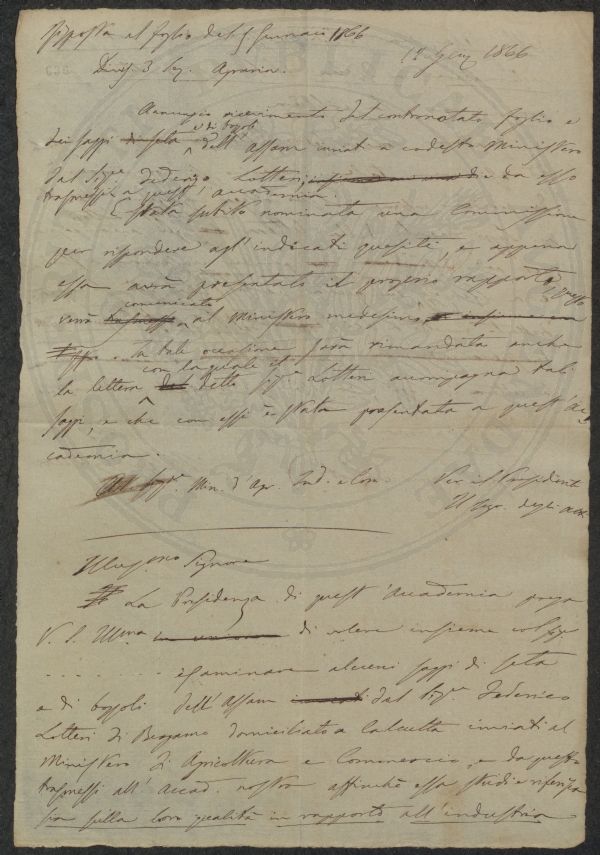 Risposta al foglio del 5 Gennaio 1866
1866
Divis. 3 Sez. Agraria.
Annunzio ricevimento del controcitato foglio e
dei saggi di seta e di bozzoli dell'Assam inviati a codesto Ministero
dal Sig.re Federigo Lotteri, e da esso
trasmessi a quest'accademia.
È stata subito nominata una Commissione
per rispondere agl'indicati quesiti, e appena
essa avrà presentato il proprio rapporto, questo
verrà comunicato al Ministero medesimo
In tale occasione sarà rimandata anche
la lettera con la quale il detto Sig.re Lotteri accompagna tali
saggi, e che con essi è stata presentata a quest'Ac
cademia.
Min. d'Agr. Ind. e Com. Per il Presidente
Il Segr. degli Atti
Illus.mo Signore
La Presidenza di quest'Accademia prega
V. S. Ill.ma di volere insieme col Sig.
. . . . . . . esaminare alcuni saggi di seta
e di bozzoli dell'Assam dal Sig.re Federico
Lotteri di Bergamo domiciliato a Calcutta inviati al
Ministero di Agricoltura e Commercio, e da questo
trasmessi all'Accad. nostra affinchè essa studi e riferisca
sulla loro qualità in rapporto all'industria